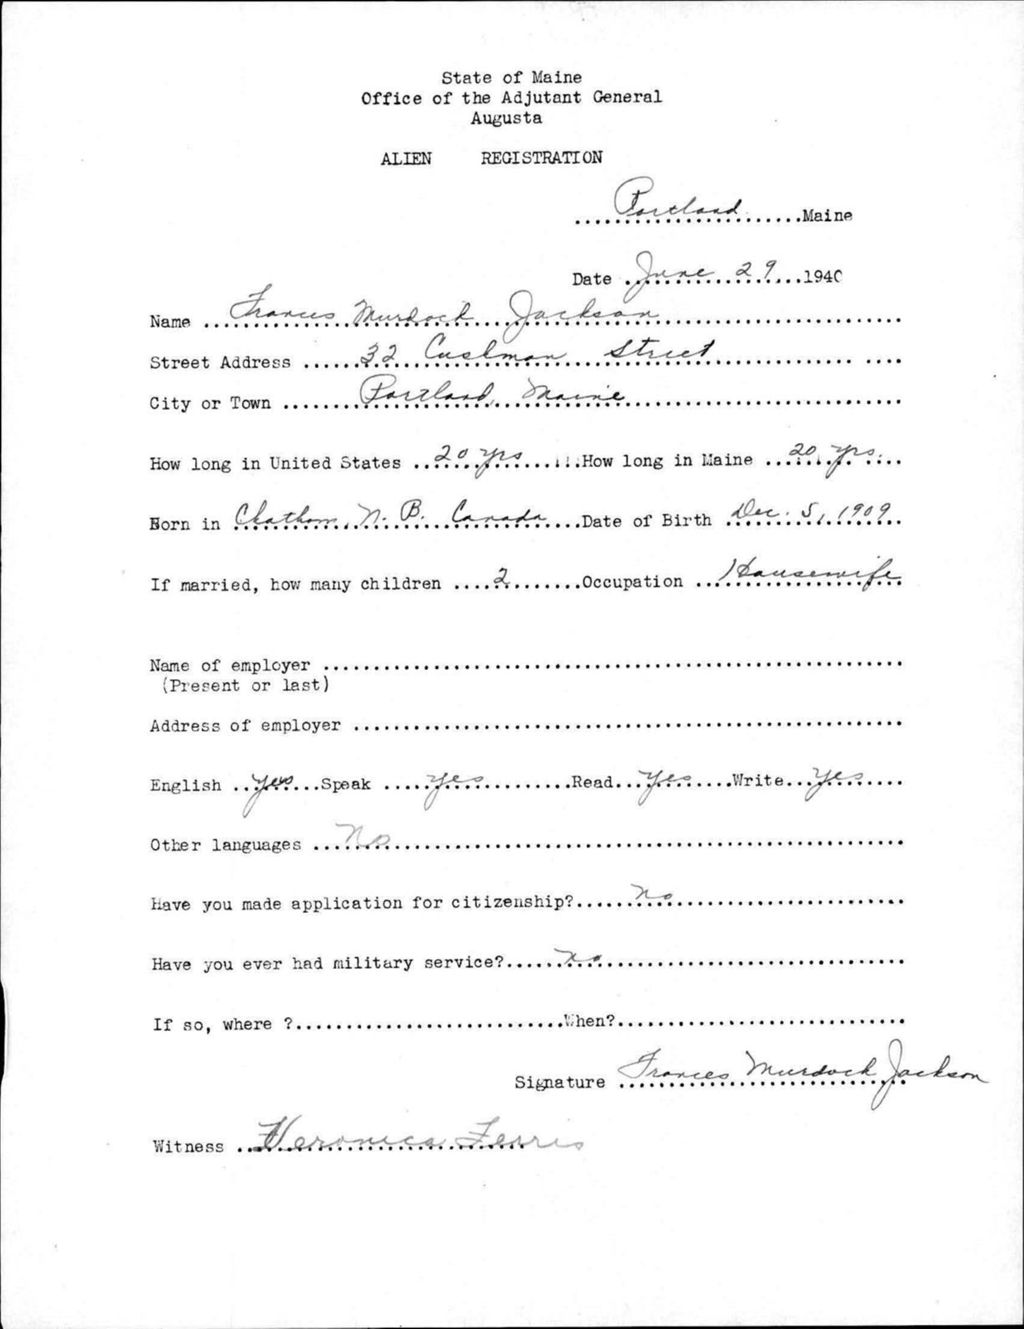 State of Maine
Office of the Adjutant General
Augusta
ALIEN REGISTRATION
Portland Maine
Date June 29 1940
Name Frances Murdock Jackson
Street Address 32 Cushman Street
City or Town Portland, Maine
How long in United States 20 yrs How long in Maine 20 yrs.
Born in Chatham, N. B. Canada Date of Birth Dec. 5, 1909
If married, how many children 2 Occupation Housewife
Name of employer
(Present or last)
Address of employer
English yes Speak yes Read yes Write yes
Other languages No
Have you made application for citizenship? no
Have you ever had military service? no
If so, where ? When?
Signature Frances Murdock Jackson
Witness Veronica Ferris